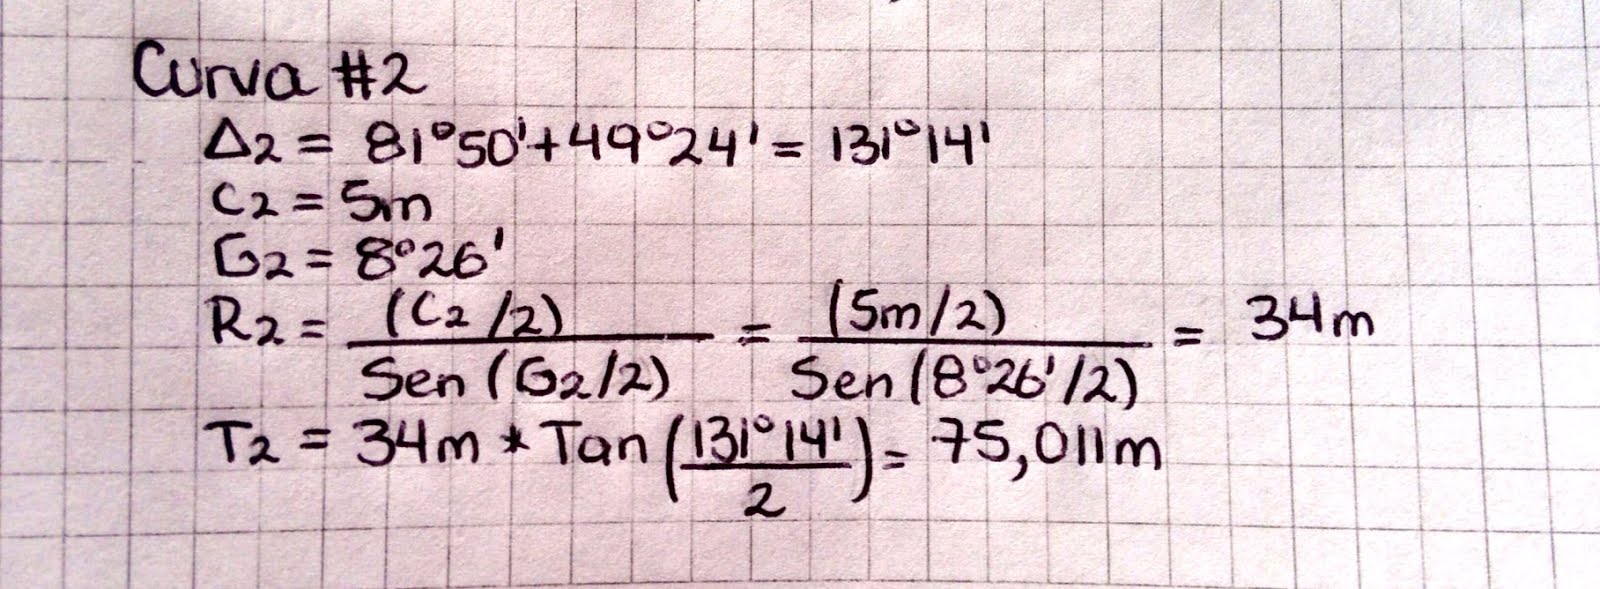 Curva #2
Δ2 = 81°50'+49°24' = 131°14'
C2 = 5m
G2 = 8°26'
R2 = (C2/2) / Sen (G2/2) = (5m/2) / Sen (8°26'/2) = 34m
T2 = 34m * Tan (131°14' / 2) = 75,011m